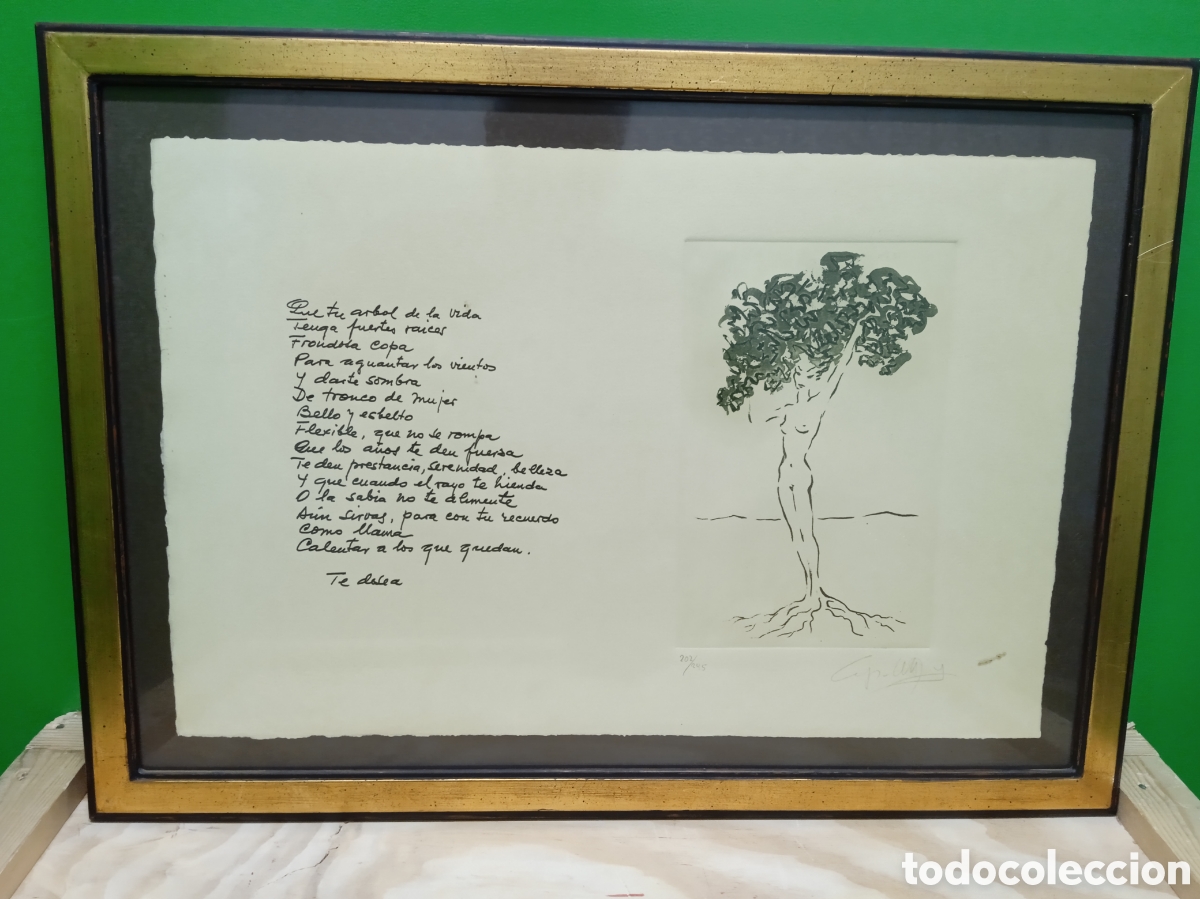 Que tu arbol de la vida
Tenga fuertes raices
Frondosa copa
Para aguantar los vientos
Y darte sombra
De tronco de mujer
Bello y esbelto
Flexible, que no se rompa
Que los años te den fuerza
Te den prestancia, serenidad, belleza
Y que cuando el rayo te hienda
O la sabia no te alimente
Aún sirvas, para con tu recuerdo
Como llama
Calentar a los que quedan.
Te desea
todocoleccion